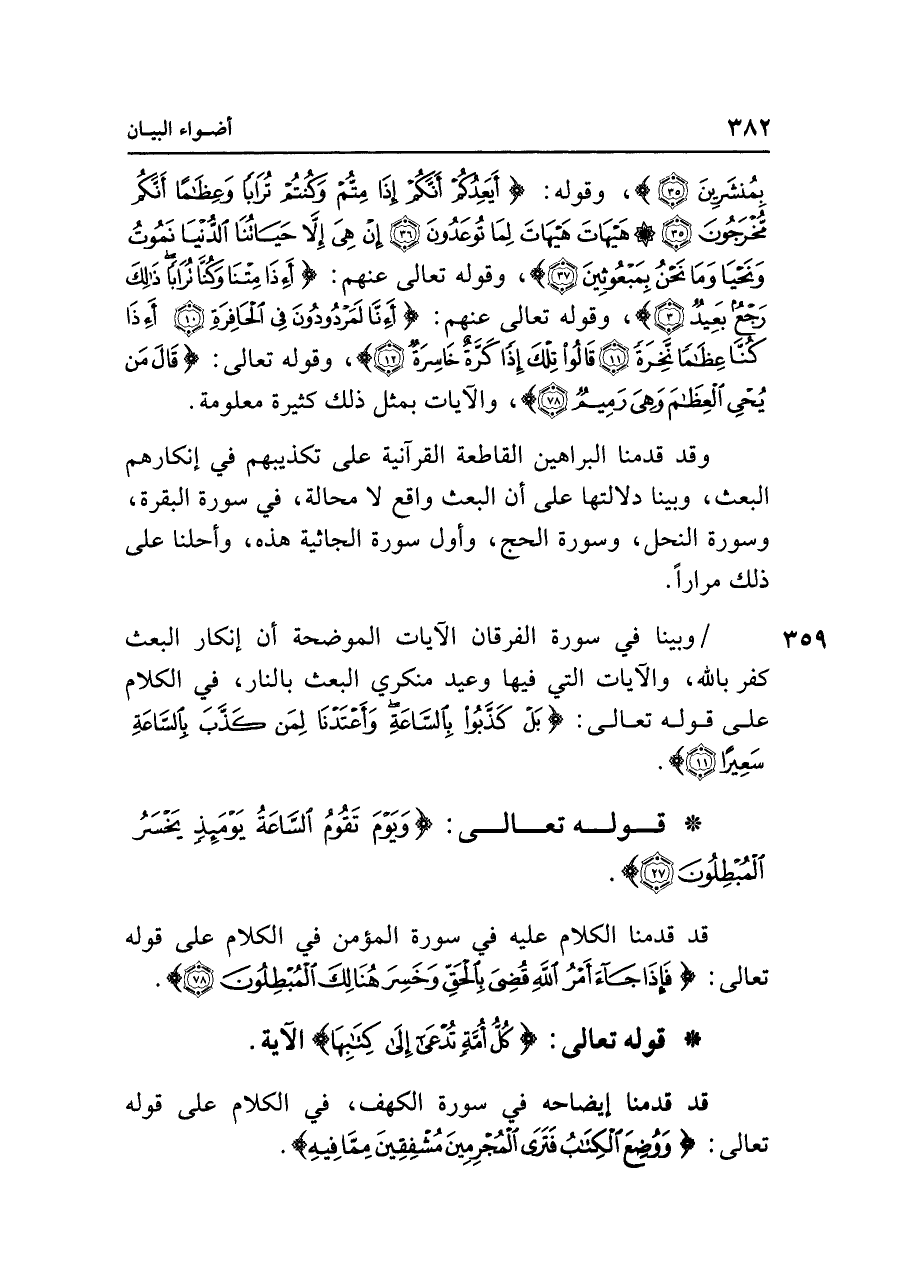 ٣٨٢ أضواء البيان
بِمُنشَرِينَ ﴿٣٥﴾﴾، وقوله: ﴿أَيَعِدُكُمْ أَنَّكُمْ إِذَا مِتُّمْ وَكُنتُمْ تُرَابًا وَعِظَٰمًا أَنَّكُم
مُّخْرَجُونَ ﴿٣٥﴾ ۞ هَيْهَاتَ هَيْهَاتَ لِمَا تُوعَدُونَ ﴿٣٦﴾ إِنْ هِىَ إِلَّا حَيَاتُنَا ٱلدُّنْيَا نَمُوتُ
وَنَحْيَا وَمَا نَحْنُ بِمَبْعُوثِينَ ﴿٣٧﴾﴾، وقوله تعالى عنهم: ﴿أَءِذَا مِتْنَا وَكُنَّا تُرَابًا ۖ ذَٰلِكَ
رَجْعٌۢ بَعِيدٌ ﴿٣﴾﴾، وقوله تعالى عنهم: ﴿أَءِنَّا لَمَرْدُودُونَ فِى ٱلْحَافِرَةِ ﴿١٠﴾ أَءِذَا
كُنَّا عِظَٰمًا نَّخِرَةً ﴿١١﴾ قَالُوا۟ تِلْكَ إِذًا كَرَّةٌ خَاسِرَةٌ ﴿١٢﴾﴾، وقوله تعالى: ﴿قَالَ مَن
يُحْىِ ٱلْعِظَٰمَ وَهِىَ رَمِيمٌ ﴿٧٨﴾﴾، والآيات بمثل ذلك كثيرة معلومة.
وقد قدمنا البراهين القاطعة القرآنية على تكذيبهم في إنكارهم
البعث، وبينا دلالتها على أن البعث واقع لا محالة، في سورة البقرة،
وسورة النحل، وسورة الحج، وأول سورة الجاثية هذه، وأحلنا على
ذلك مراراً.
٣٥٩ /وبينا في سورة الفرقان الآيات الموضحة أن إنكار البعث
كفر بالله، والآيات التي فيها وعيد منكري البعث بالنار، في الكلام
على قوله تعالى: ﴿بَلْ كَذَّبُوا۟ بِٱلسَّاعَةِ ۖ وَأَعْتَدْنَا لِمَن كَذَّبَ بِٱلسَّاعَةِ
سَعِيرًا ﴿١١﴾﴾.
* قوله تعالى: ﴿وَيَوْمَ تَقُومُ ٱلسَّاعَةُ يَوْمَئِذٍ يَخْسَرُ
ٱلْمُبْطِلُونَ ﴿٢٧﴾﴾.
قد قدمنا الكلام عليه في سورة المؤمن في الكلام على قوله
تعالى: ﴿فَإِذَا جَآءَ أَمْرُ ٱللَّهِ قُضِىَ بِٱلْحَقِّ وَخَسِرَ هُنَالِكَ ٱلْمُبْطِلُونَ ﴿٧٨﴾﴾.
* قوله تعالى: ﴿كُلُّ أُمَّةٍ تُدْعَىٰٓ إِلَىٰ كِتَٰبِهَا﴾ الآية.
قد قدمنا إيضاحه في سورة الكهف، في الكلام على قوله
تعالى: ﴿وَوُضِعَ ٱلْكِتَٰبُ فَتَرَى ٱلْمُجْرِمِينَ مُشْفِقِينَ مِمَّا فِيهِ﴾.